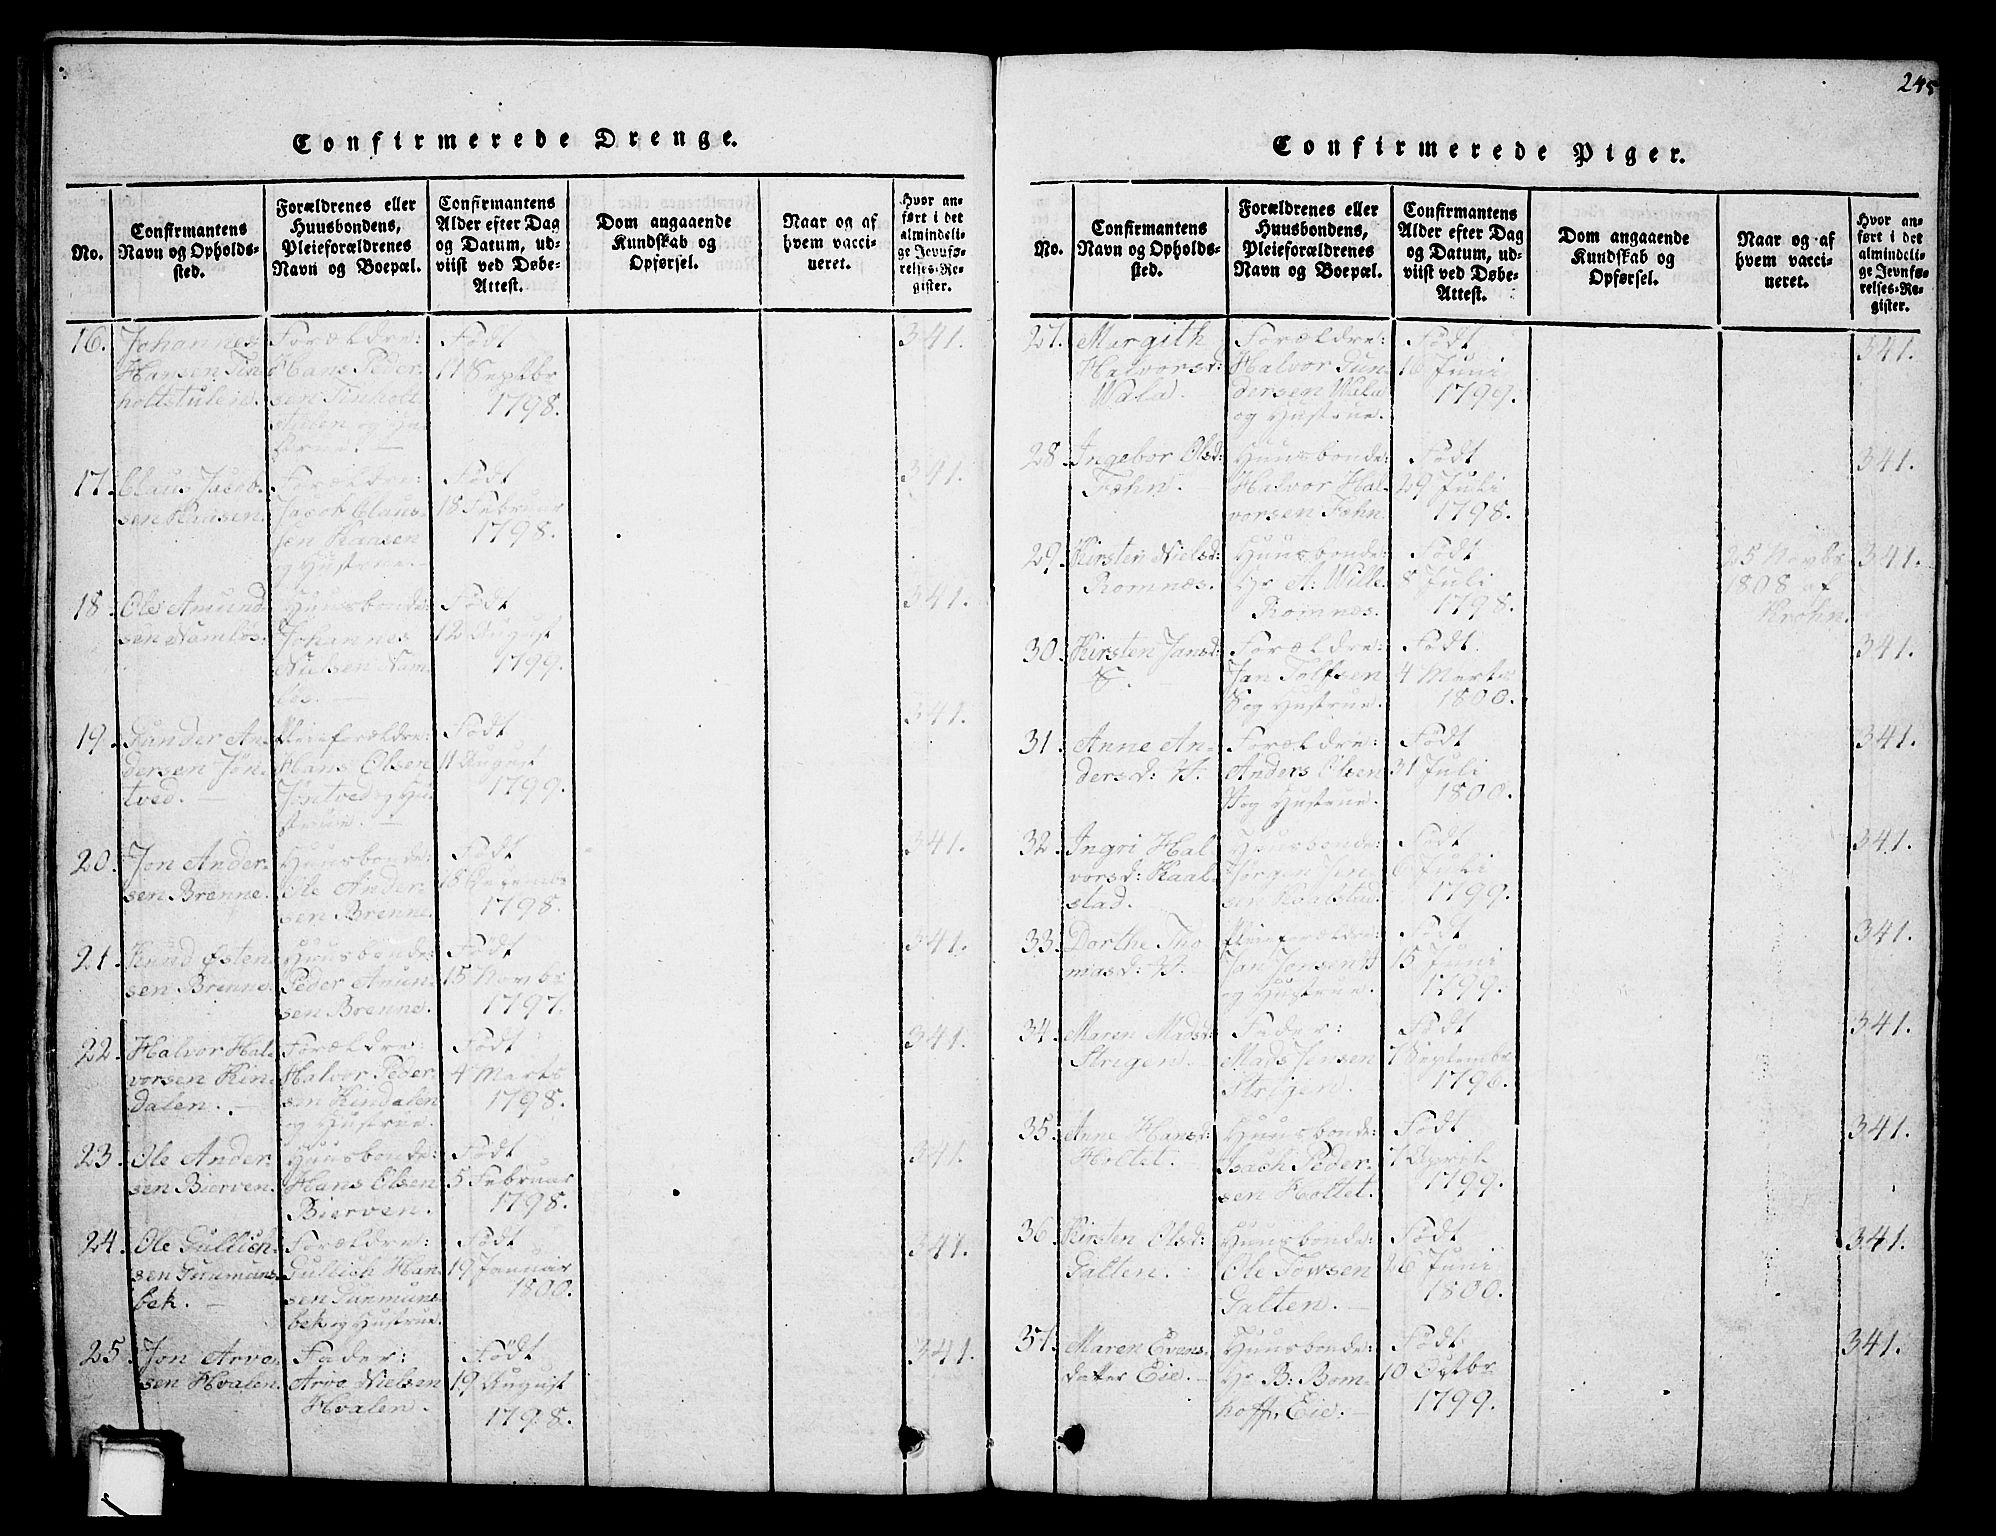 245
Confirmerede Drenge.
No.
Confirmantens
Navn og Opholds-
sted.
Forældrenes eller
Huusbondens,
Pleieforældrenes
Navn og Boepæl.
Confirmantens
Alder efter Dag
og Datum, ud-
viist ved Døbe-
Attest.
Dom angaaende
Kundskab og
Opførsel.
Naar og af
hvem vacci-
neret.
Hvor an-
ført i det
almindeli-
ge Jevnfø-
relses-Re-
gister.
16.
Johannes
Hansen Tin
holtstulen.
Forældre:
Hans Peder-
sen Tinholt
stulen og Hu
strue. —
Født
11 Septbr
1798.
341.
17.
Claus Jacob-
sen Kaasen.
Forældre:
Jacob Claus-
sen Kaasen
og Hustrue.
Født
18 Februar
1798.
341.
18.
Ole Amund
sen Namløs.
Huusbonde:
Johannes
Nielsen Nam
løs. —
Født
12 August
1799.
341.
19.
Gunder An
dersen Jøn
tved. —
Pleieforældre:
Hans Olsen
Jøntved og Hu
strue. —
Født
11 August
1799.
341.
20.
Jon Ander-
sen Brenne.
Huusbonde:
Ole Ander-
sen Brenne.
Født
18 Decemb:
1798.
341.
21.
Knud Østen
sen Brenne.
Huusbonde:
Peder Anun
sen Brenne.
Født
15 Novmbr
1797.
341.
22.
Halvor Hal
vorsen Kin
dalen. —
Forældre:
Halvor Peder-
sen Kindalen
og Hustrue.
Født
4 Marts
1798.
341.
23.
Ole Ander-
sen Bierven.
Huusbonde:
Hans Olsen
Bierven.
Født
5 Februar
1798.
341.
24.
Ole Gullich-
sen Gunmuns-
bek. —
Forældre:
Gullich Han
sen Gunmuns-
bek og Hustrue.
Født
19 Januar
1800.
341.
25.
Jon Arve-
sen Hvalen.
Fader:
Arve Nielsen
Hvalen.
Født
19 August
1798.
341.
Confirmerede Piger.
No.
Confirmantens
Navn og Opholds-
sted.
Forældrenes eller
Huusbondens,
Pleieforældrenes
Navn og Boepæl.
Confirmantens
Alder efter Dag
og Datum, ud-
viist ved Døbe-
Attest.
Dom angaaende
Kundskab og
Opførsel.
Naar og af
hvem vacci-
neret.
Hvor an-
ført i det
almindeli-
ge Jevnfø-
relses-Re-
gister.
27.
Margith
Halvorsd:
Wala.
Forældre:
Halvor Gun
dersen Wala
og Hustrue.
Født
16 Juni
1799.
341.
28.
Ingebor Olsd:
Fæhn.
Huusbonde:
Halvor Hal-
vorsen Fæhn.
Født
29 Juli
1798.
341.
29.
Kirsten Nielsd:
Romnæs.
Huusbonde:
Hr A: Wille
Romnæs.
Født
8 Juli
1798.
25 Novbr
1808 af
Krohn.
341.
30.
Kirsten Jansd:
S.
Forældre:
Jan Tolfsen
S og Hustrue.
Født.
4 Marts
1800.
341.
31.
Anne An-
dersd: H.
Forældre:
Anders Olsen
H og Hustrue.
Født
31 Juli
1800.
341.
32.
Ingri Hal
vorsd: Kaal-
stad.
Huusbonde:
Jørgen Jen
sen Kaalstad.
Født
6 Juli
1799.
341.
33.
Dorthe Tho
masd: H.
Pleieforældre:
Jan Jonsen H
og Hustrue.
Født
15 Juni
1799.
341.
34.
Maren Madsd:
Strigen.
Fader:
Mads Jensen
Strigen.
Født
7 Septembr
1796.
341.
35.
Anne Hansd:
Holtet.
Huusbonde:
Isach Peder-
sen Holtet.
Født
7 April
1799.
341.
36.
Kirsten Olsd:
Galten.
Huusbonde:
Ole Towsen
Galten. —
Født
26 Juni
1800.
341.
37.
Maren Evens-
datter Eie. —
Huusbonde:
Hr B: Bom-
hoff, Eie. —
Født
10 Octbr
1799.
341.